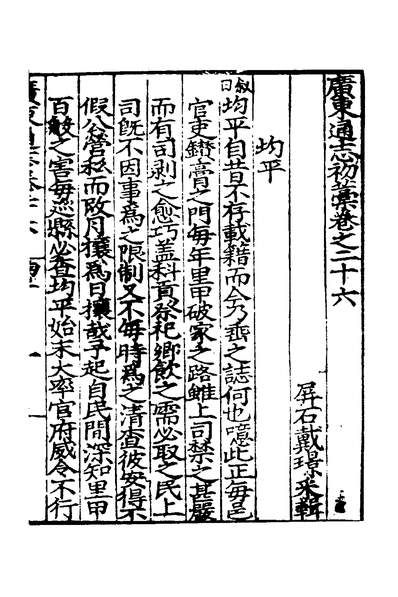 廣東通志初藁卷之二十六
屏石戴璟采輯
均平
叙曰均平自昔不存載籍而今乃垂之誌何也噫此正每邑
官吏鑽膏之門每年里甲破家之路雖上司禁之甚嚴
而有司剥之愈巧蓋科貢祭祀鄉飲之需必取之民上
司旣不因事為之限制又不每時為之清查彼安得不
假公營私而改月攘為日攘哉予起自民間深知里甲
百般之害每巡縣必查均平始末大率官府威令不行